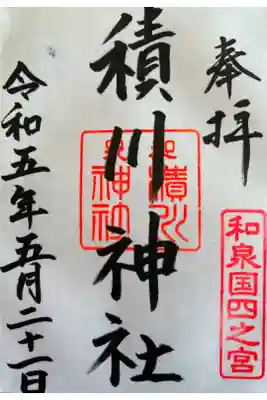 奉拝
和泉国四之宮
積川神社
令和五年五月二十一日